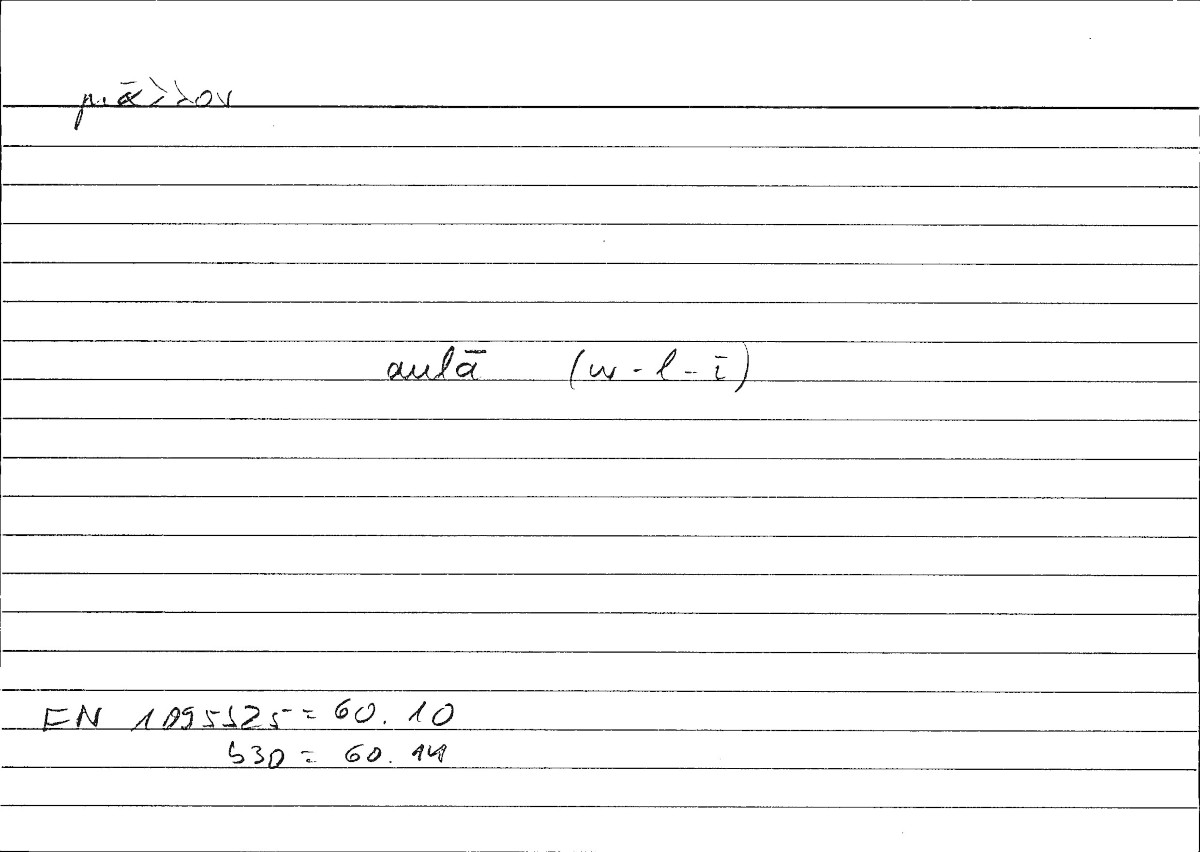 μᾶλλον
aulā (w-l-ī)
EN 1095b25 = 60.10
b30 = 60.14